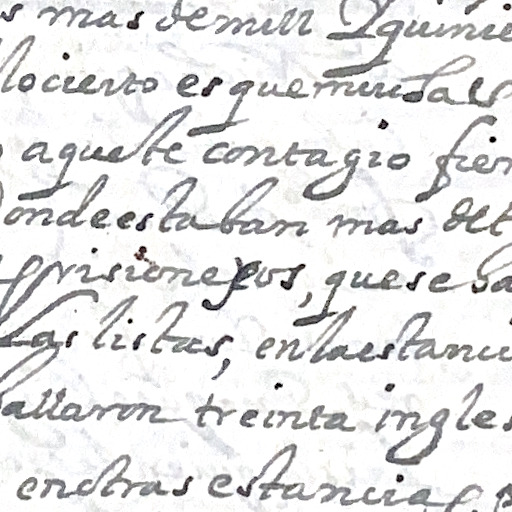 s mas de mill Y quinie
lo cierto es que muchaes
aqueste contagio fier
donde estaban mas de t
prisioneros, que se ba
las listas, en la estanci
allaron treinta ingles
en otras estancias, p